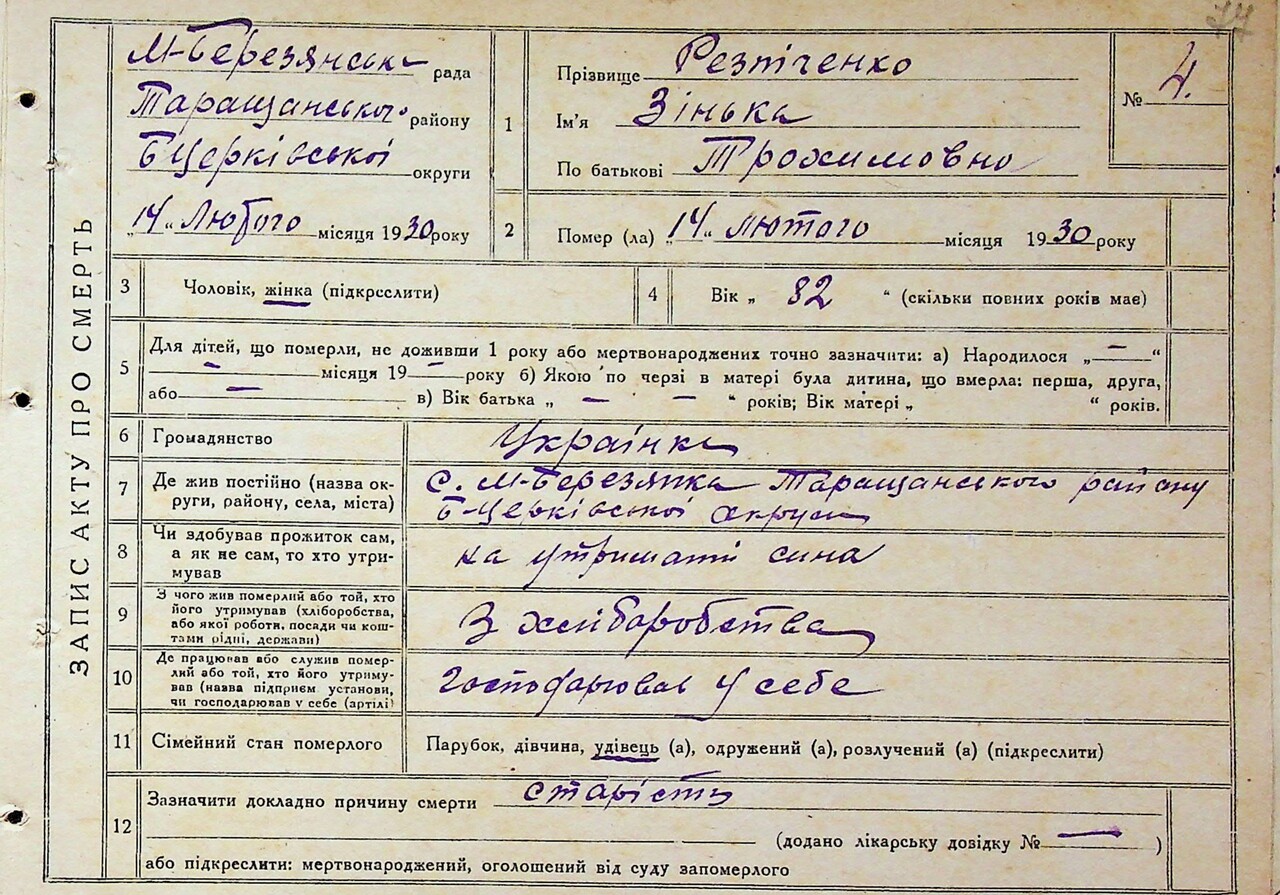 74
ЗАПИС АКТУ ПРО СМЕРТЬ
М-Березянська рада
Таращанського району
Б Церківської округи
„14“ Лютого місяця 1930 року
1
Прізвище Резніченко
Ім'я Зінька
По батькові Трохимовно
№ 4.
2
Помер (ла) „14“ лютого місяця 1930 року
3
Чоловік, жінка (підкреслити)
4
Вік „ 82 “ (скільки повних років має)
5
Для дітей, що померли, не доживши 1 року або мертвонароджених точно зазначити: а) Народилося „ — “
— місяця 19 — року б) Якою по черзі в матері була дитина, що вмерла: перша, друга,
або — в) Вік батька „ — — “ років; Вік матері „ “ років.
6
Громадянство Українка
7
Де жив постійно (назва ок-
руги, району, села, міста)
с. М-Березянка Таращанського району
Б-Церківської округи
8
Чи здобував прожиток сам,
а як не сам, то хто утри-
мував
на утриманні сина
9
З чого жив померлий або той, хто
його утримував (хліборобства,
або якої роботи, посади чи кош-
тами рідні, держави)
З хліборобства
10
Де працював або служив помер-
лий або той, хто його утриму-
вав (назва підприєм установи,
чи господарював у себе (артілі)
господарював у себе
11
Сімейний стан померлого
Парубок, дівчина, удівець (а), одружений (а), розлучений (а) (підкреслити)
12
Зазначити докладно причину смерти старість
(додано лікарську довідку № — )
або підкреслити: мертвонароджений, оголошений від суду запомерлого